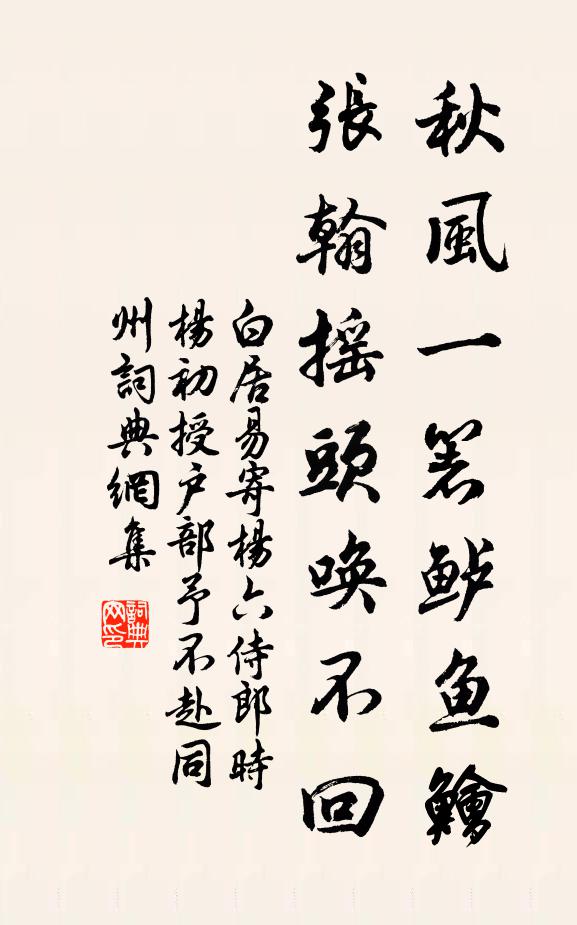 秋風一箸鲈鱼鱠
張翰摇頭唤不回
白居易寄楊六侍郎時
楊初授户部予不赴同
州詞典網集
詞典网印